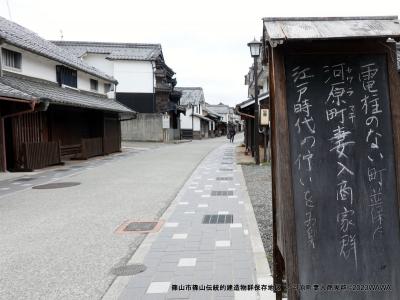 電柱のない町並み
河原町妻入商家群
カワラ マチ
江戸時代の佇いを
篠山市篠山伝統的建造物群保存地区
河原町妻入商家群©2023WAWA